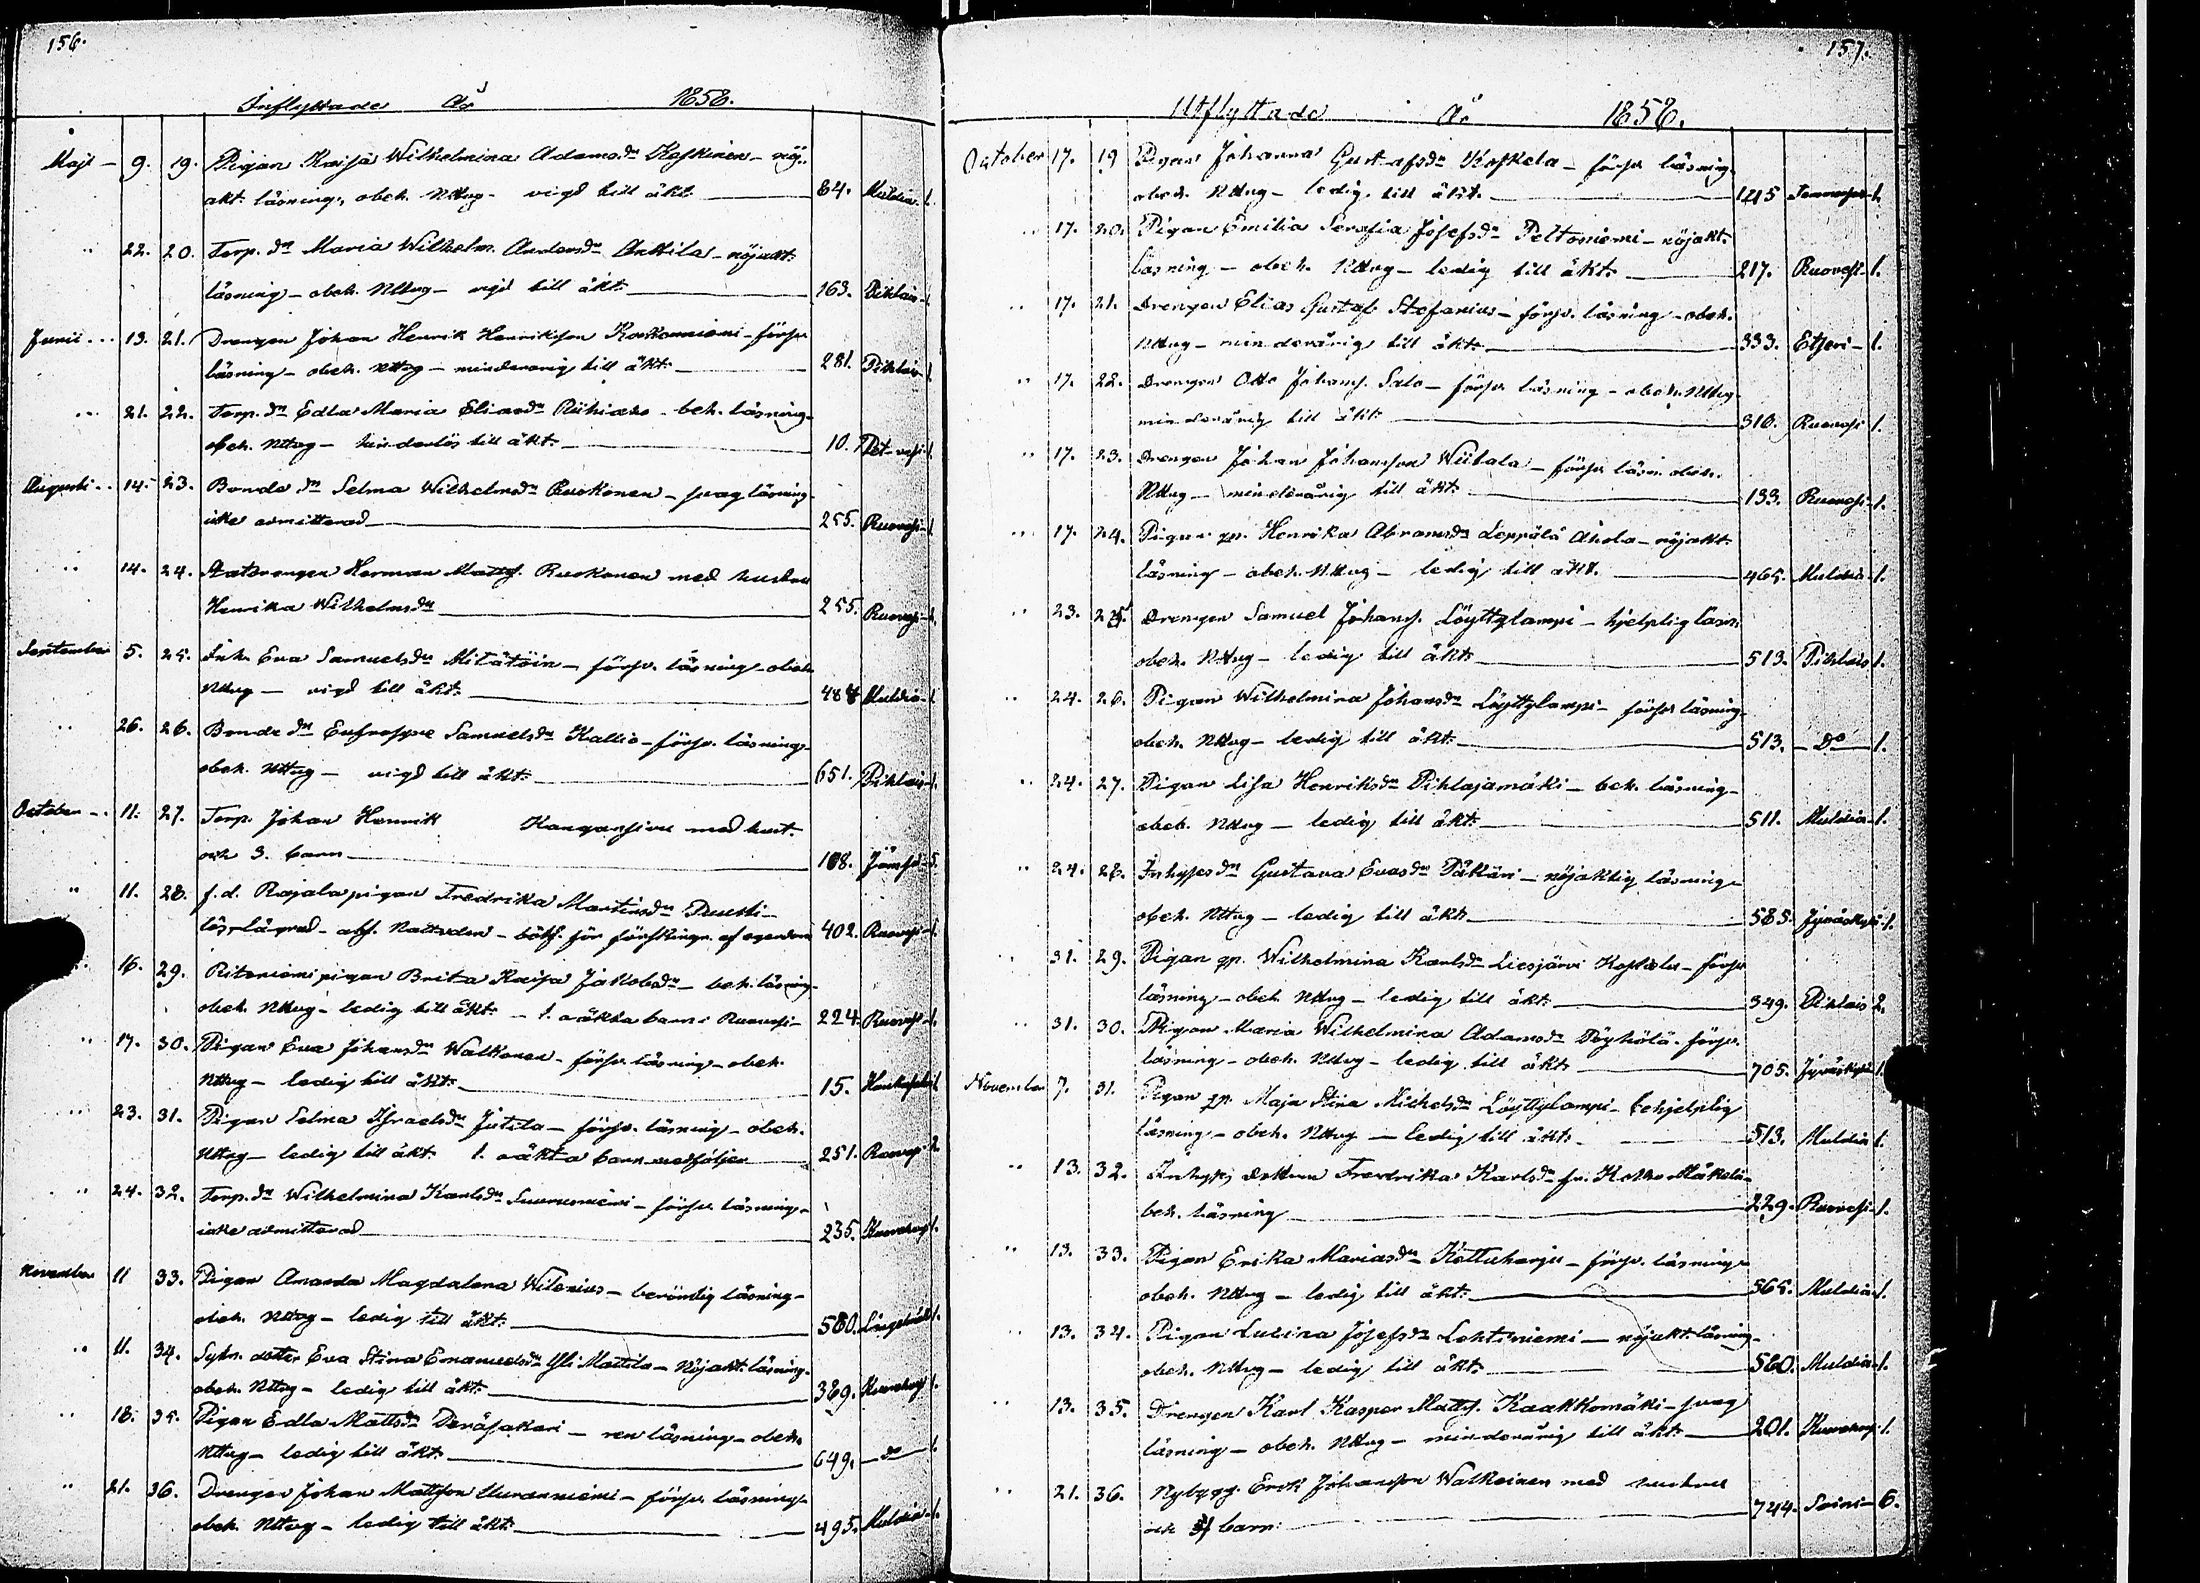 156.
Inflyttade År 1858.
Maji - 9. 19. Pigan Kaisa Wilhelmina Adamsdr Koskinen - nöj-
akt. läsning, obeh. Nttvg - vigd till äkt. 64. Muldia 1.
" 22. 20. Torp. dr Maria Wilhelm. Andersdr Anttila - nöjakt.
läsning - obeh. Nttvg - vigd till äkt. 163. Pihlais 1.
Junii 13. 21. Drengen Johan Henrik Henriksson - försv.
läsning - obeh. Nttvg - minderårig till äkt. 281. Pihlais 1.
" 21. 22. Torp. dr Edla Maria Eliasdr Riihiaho - beh. läsning
obeh. Nttvg - hinderlös till äkt. 10. 1.
Augusti 14. 23. Bonde dr Selma Wilhelmsdr Ruokonen - svag läsning
icke admitterad 255. Ruovesi 1.
" 14. 24. Statdrengen Herman Matts. Ruokonen med hustru
Henrika Wilhelmsdr 255. Ruovesi
September 5. 25. Inh. Eva Samuelsdr - försv. läsning - obeh.
Nttvg - vigd till äkt. 488 Muldia 1.
" 26. 26. Bonde dr Eufrosyne Samuelsdr Kallio - försv. läsning
obeh. Nttvg - vigd till äkt. 651. Pihlais 1.
October 11. 27. Torp. Johan Henrik Kangassivu med hust.
och 3. barn 108. Jämsä 5.
" 11. 28. f.d. Rajalapigan Fredrika Martinsdr
löslägrad - abs. Nattvden - för förskingr. af egendom 402. Ruovesi 1.
" 16. 29. Ritoniemipigan Brita Kaisa Jakobsdr - beh. läsning
obeh. Nttvg - ledig till äkt. - 1. oäkta barn i Ruovesi 224. Ruovesi 1.
" 17. 30. Pigan Eva Johansdr Walkonen - försv. läsning - obeh.
Nttvg - ledig till äkt. 15. 1.
" 23. 31. Pigan Selma Israelsdr Jutila - försv. läsning - obeh.
Nttvg - ledig till äkt. 1. oäkta barn medföljer 251. Ruovesi 2.
" 24. 32. Torp. dr Wilhelmina Karlsdr - försv. läsning
icke admitterad 235. 1.
November 11 33. Pigan Amanda Magdalena Wilenius - berömlig läsning -
obeh. Nttvg - ledig till äkt. 580. 1.
" 11. 34. Sytn. dotter Eva Stina Emanuelsdr Yli Mattila - Nöjakt. läsning
obeh. Nttvg - ledig till äkt. 389. 1.
" 18. 35. Pigan Edla Mattsdr Peräsakari - ren läsning - obeh.
Nttvg - ledig till äkt. 649. do 1.
" 21. 36. Drengen Johan Mattson - försv. läsning
obeh. Nttvg - ledig till äkt. 495. Muldia 1.
157.
Utflyttade År 1858.
October 17. 19 Pigan Johanna Gustafsdr Koskela - försv. läsning
obeh. Nttvg - ledig till äkt. 1215 1.
" 17. 20. Pigan Emilia Serafia Josefsdr Peltoniemi - nöjakt.
läsning - obeh. Nttvg - ledig till äkt. 217. Ruovesi 1.
" 17. 21. Drengen Elias Gustaf Stefanius - försv. läsning - obeh.
Nttvg - minderårig till äkt. 333. Etseri 1.
" 17. 22. Drengen Otto Johans. Salo - försv. läsning - obeh. Nttvg
minderårig till äkt. 310. Ruovesi 1.
" 17. 23. Drengen Johan Johansson Wiitala - försv. läsn. obeh.
Nttvg - minderårig till äkt. 133. Ruovesi 1.
" 17. 24. Pigan qv. Henrika Abramsdr Leppälä Ahola - nöjakt.
läsning - obeh. Nttvg - ledig till äkt. 465. Muldia 1.
" 23. 25. Drengen Samuel Johans. Löyttylampi - hjelplig läsn.
obeh. Nttvg - ledig till äkt. 513. Pihlais 1.
" 24. 26. Pigan Wilhelmina Johansdr Löyttylampi - försv. läsning
obeh. Nttvg - ledig till äkt. 513. Do 1.
" 24. 27. Pigan Lisa Henriksdr Pihlajamäki - beh. läsning -
obeh. Nttvg - ledig till äkt. 511. Muldia 1.
" 24. 28. Inhyses dr Gustava Evasdr - nöjaktig läsning
obeh. Nttvg - ledig till äkt. 585. Jyväskylä 1.
" 31. 29. Pigan qv. Wilhelmina Karlsdr Liesjärvi - försv.
läsning - obeh. Nttvg - ledig till äkt. 349. Pihlais 2.
" 31. 30. Pigan Maria Wilhelmina Adamsdr Pöyhölä - försv.
läsning - obeh. Nttvg - ledig till äkt. 705. Jyväskylä 1.
November 7. 31. Pigan qv. Maja Stina Michelsdr Löyttylampi - behjelplig
läsning - obeh. Nttvg - ledig till äkt. 513. Muldia 1.
" 13. 32. Inhyses dottren Fredrika Karlsdr fr. Mäkelä
beh. läsning 229. Ruovesi 1.
" 13. 33. Pigan Erika Mariasdr Kettuharju - försv. läsning
obeh. Nttvg - ledig till äkt. 565. Muldia 1.
" 13. 34. Pigan Lusina Josefsdr Lehtiniemi - nöjakt. läsning -
obeh. Nttvg - ledig till äkt. 560. Muldia 1.
" 13. 35. Drengen Karl Kasper Matts. Kaakkomäki - svag
läsning - obeh. Nttvg - minderårig till äkt. 201. 1.
" 21. 36. Nybygg. Erik Johansson Walkeinen med hustru
och 4 barn 744. Soini 6.